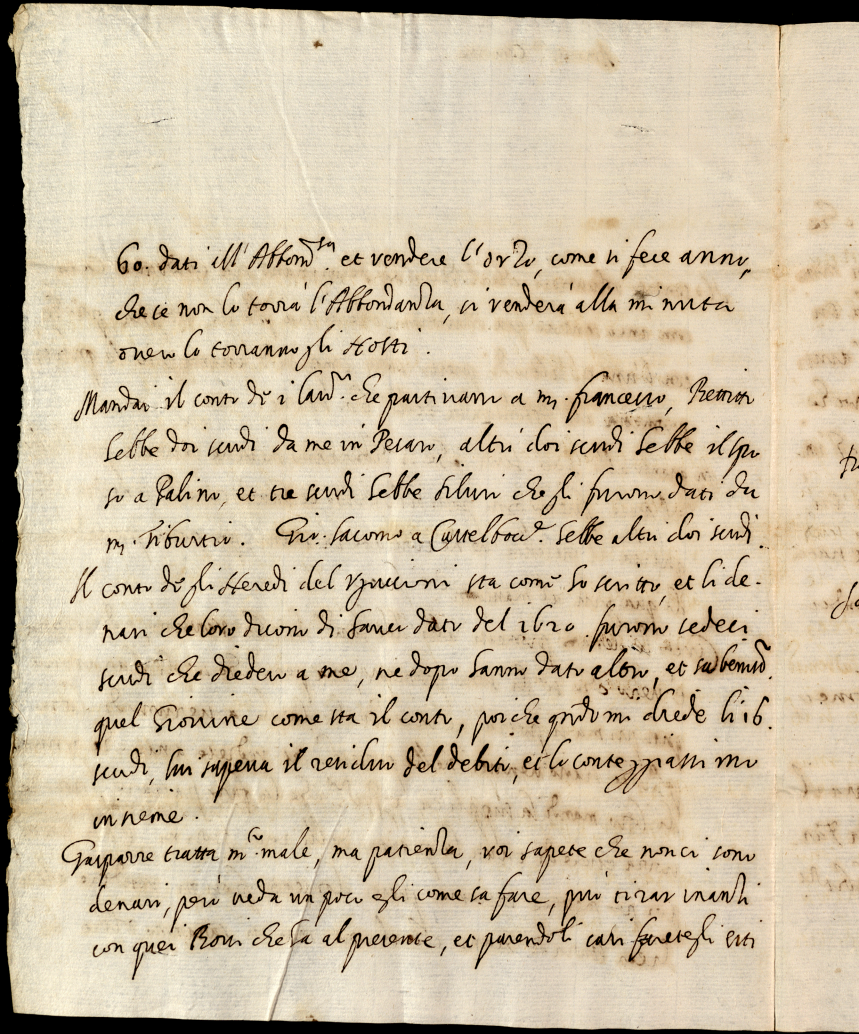 60. dati all'Abbond.za et vendere l'orzo, come si fece anno,
che se non lo torrà l'Abbondanza, si venderà alla minuta
overo lo torranno gli Hosti.
Mandai il conto de i lard.i che partirano a m. francesco,
hebbe doi scudi da me in Pesaro, altri doi scudi hebbe il spe
so a Palino, et tre scudi hebbe Silvio che gli furono dati da
m. Tiburtio. Gio. Jacomo a Castelbac.e hebbe altri doi scudi.
Il conto de gli Heredi del Uguccioni sta come ho scritto, et li de-
nari che loro dicono di haver dato del 1620 furono sedeci
scudi che diedero a me, ne dopo hanno dato altro, et sa benis.o
quel Giovine come sta il conto, poi che qndo mi diede li 16.
scudi, lui sapeva il residuo del debito, et lo conteggiassimo
insieme.
Gasparre tratta m.to male, ma patienza, voi sapete che non ci sono
denari, però veda un poco egli come sa fare, può tirar inanzi
con quei Bovi che ha al presente, et parendoli cavi faretegli